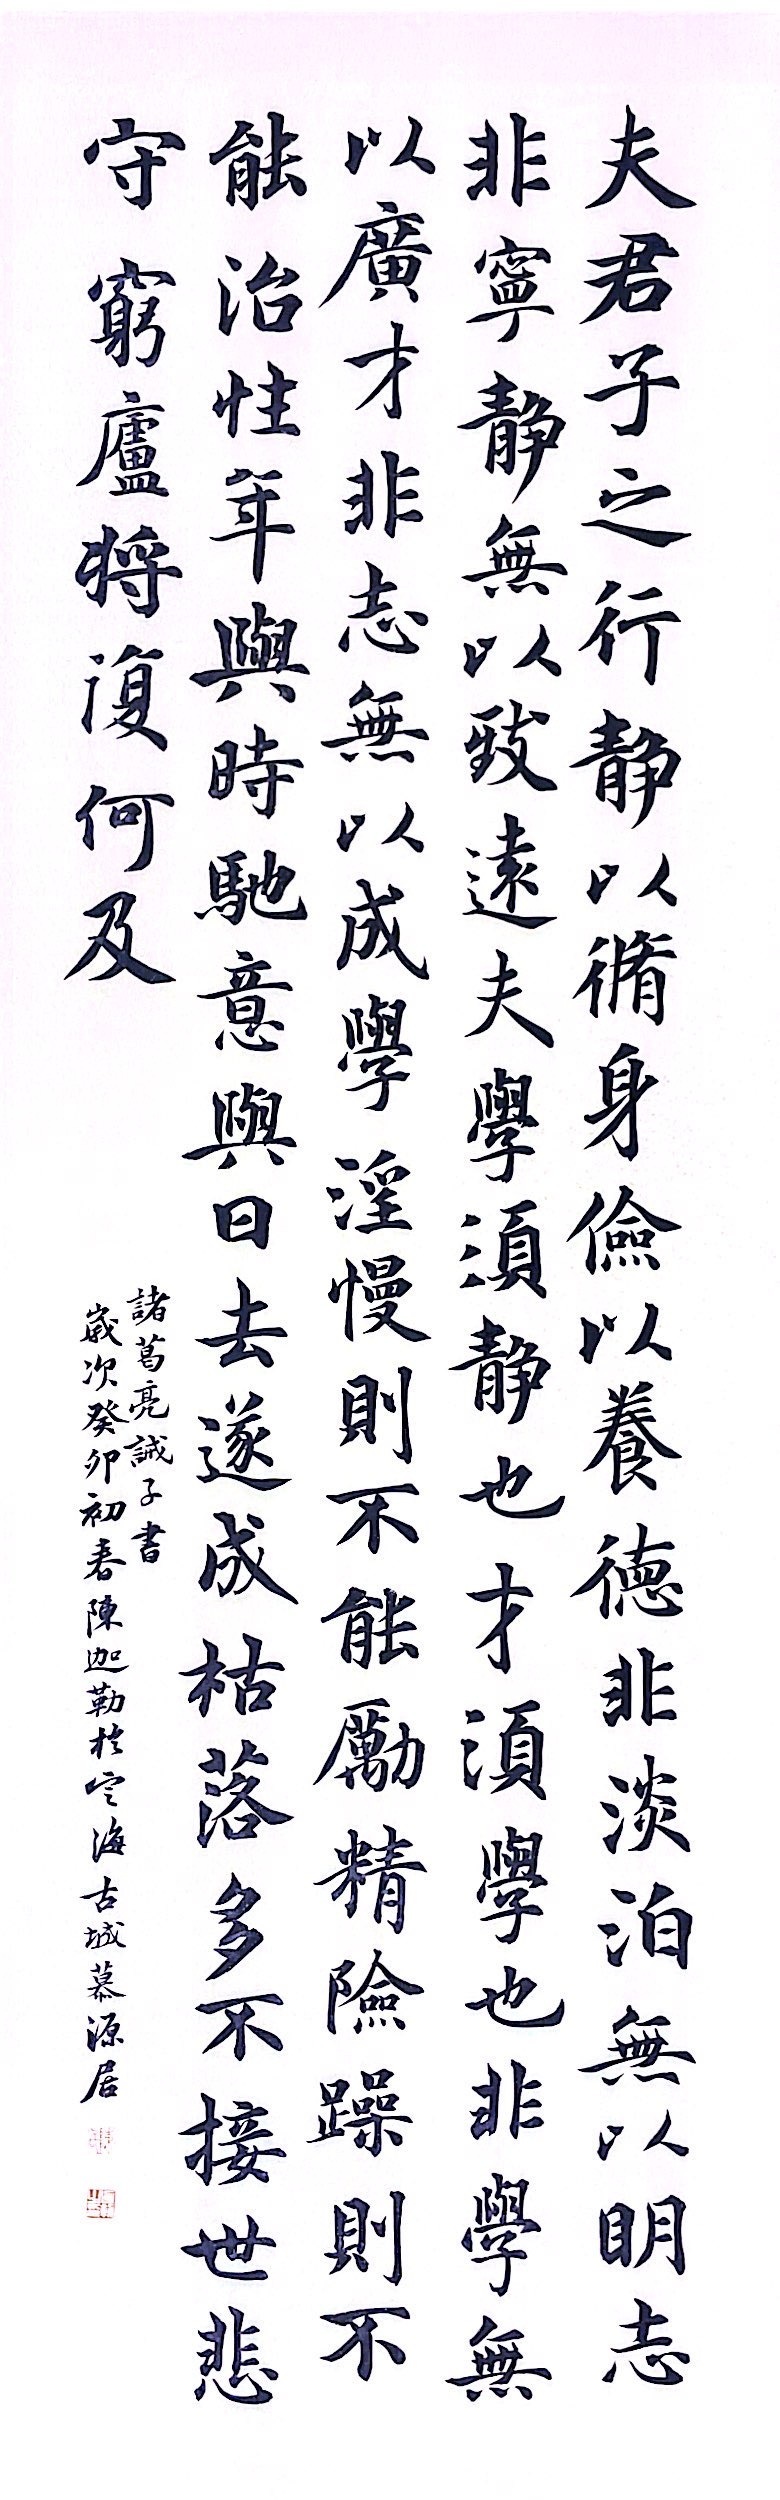 夫君子之行静以脩身儉以養德非淡泊無以明志
非寧静無以致遠夫學須静也才須學也非學無
以廣才非志無以成學淫慢則不能勵精險躁則不
能治性年與時馳意與日去遂成枯落多不接世悲
守窮廬将復何及
諸葛亮誡子書
歲次癸卯初春陳迦勒於定海古城慕源居